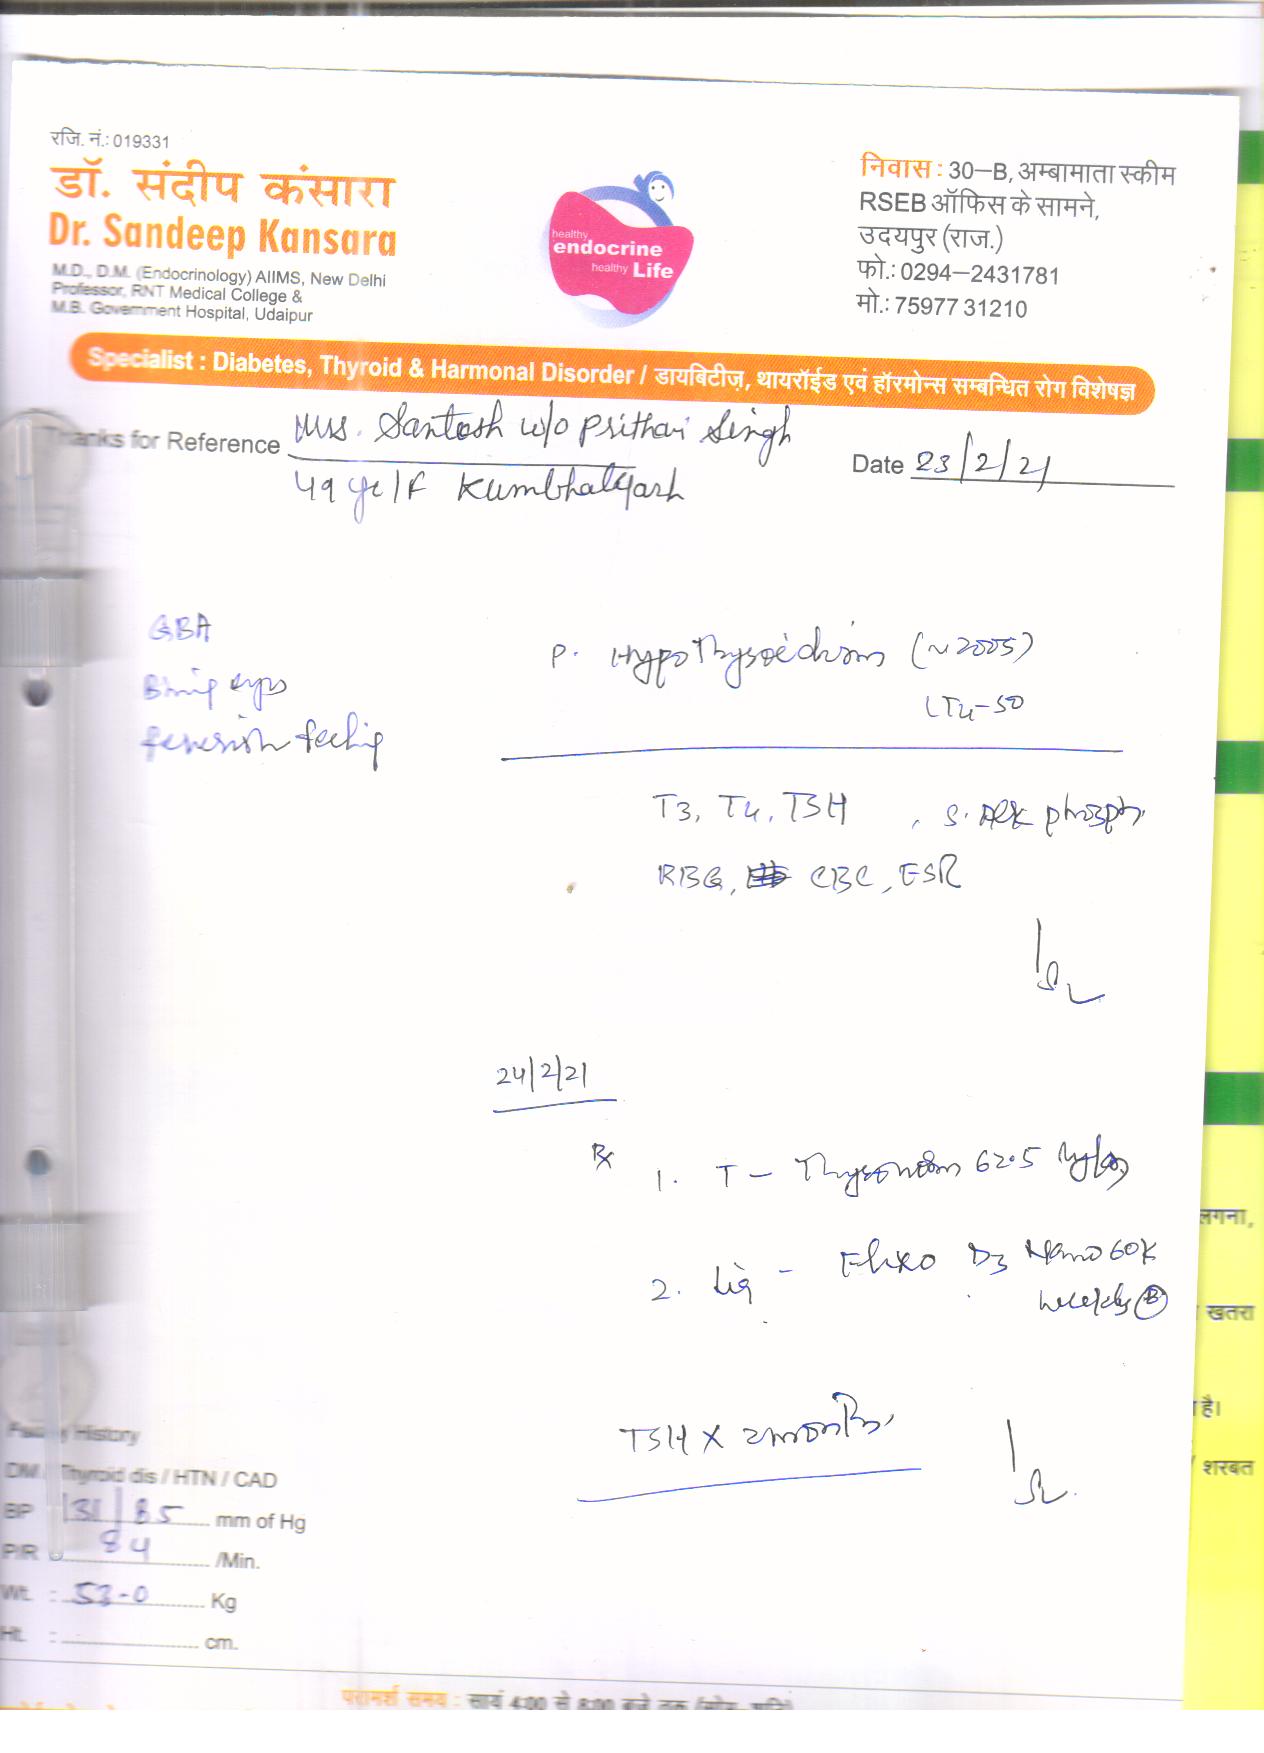 रजि. नं.: 019331
डॉ. संदीप कंसारा
Dr. Sandeep Kansara
M.D., D.M. (Endocrinology) AIIMS, New Delhi
Professor, RNT Medical College &
M.B. Government Hospital, Udaipur
healthy
endocrine
healthy Life
निवास : 30-B, अम्बामाता स्कीम
RSEB ऑफिस के सामने,
उदयपुर (राज.)
फो.: 0294-2431781
मो.: 75977 31210
Specialist : Diabetes, Thyroid & Harmonal Disorder / डायबिटीज़, थायरॉईड एवं हॉरमोन्स सम्बन्धित रोग विशेषज्ञ
Thanks for Reference Mrs. Santosh w/o Prithavi Singh
Date 23/2/21
49 yr/F Kumbhalgarh
GBA
P. Hypothyroidism (~2005)
LT4-50
feeling
T3, T4, TSH , S. Alk phosph.
RBG, CBC, ESR
24/2/21
Rx
1. T - Thyronorm 62.5
2. Liq - D3 Nano 60K
weekly
TSH x 2 months
लगना,
खतरा
है।
/ शरबत
Family History
DM / Thyroid dis / HTN / CAD
BP 131/85 mm of Hg
P/R 84 /Min.
Wt. : 53-0 Kg
Ht. : cm.
परामर्श समय : सायं 4:00 से 8:00 बजे तक (सोम-शनि)